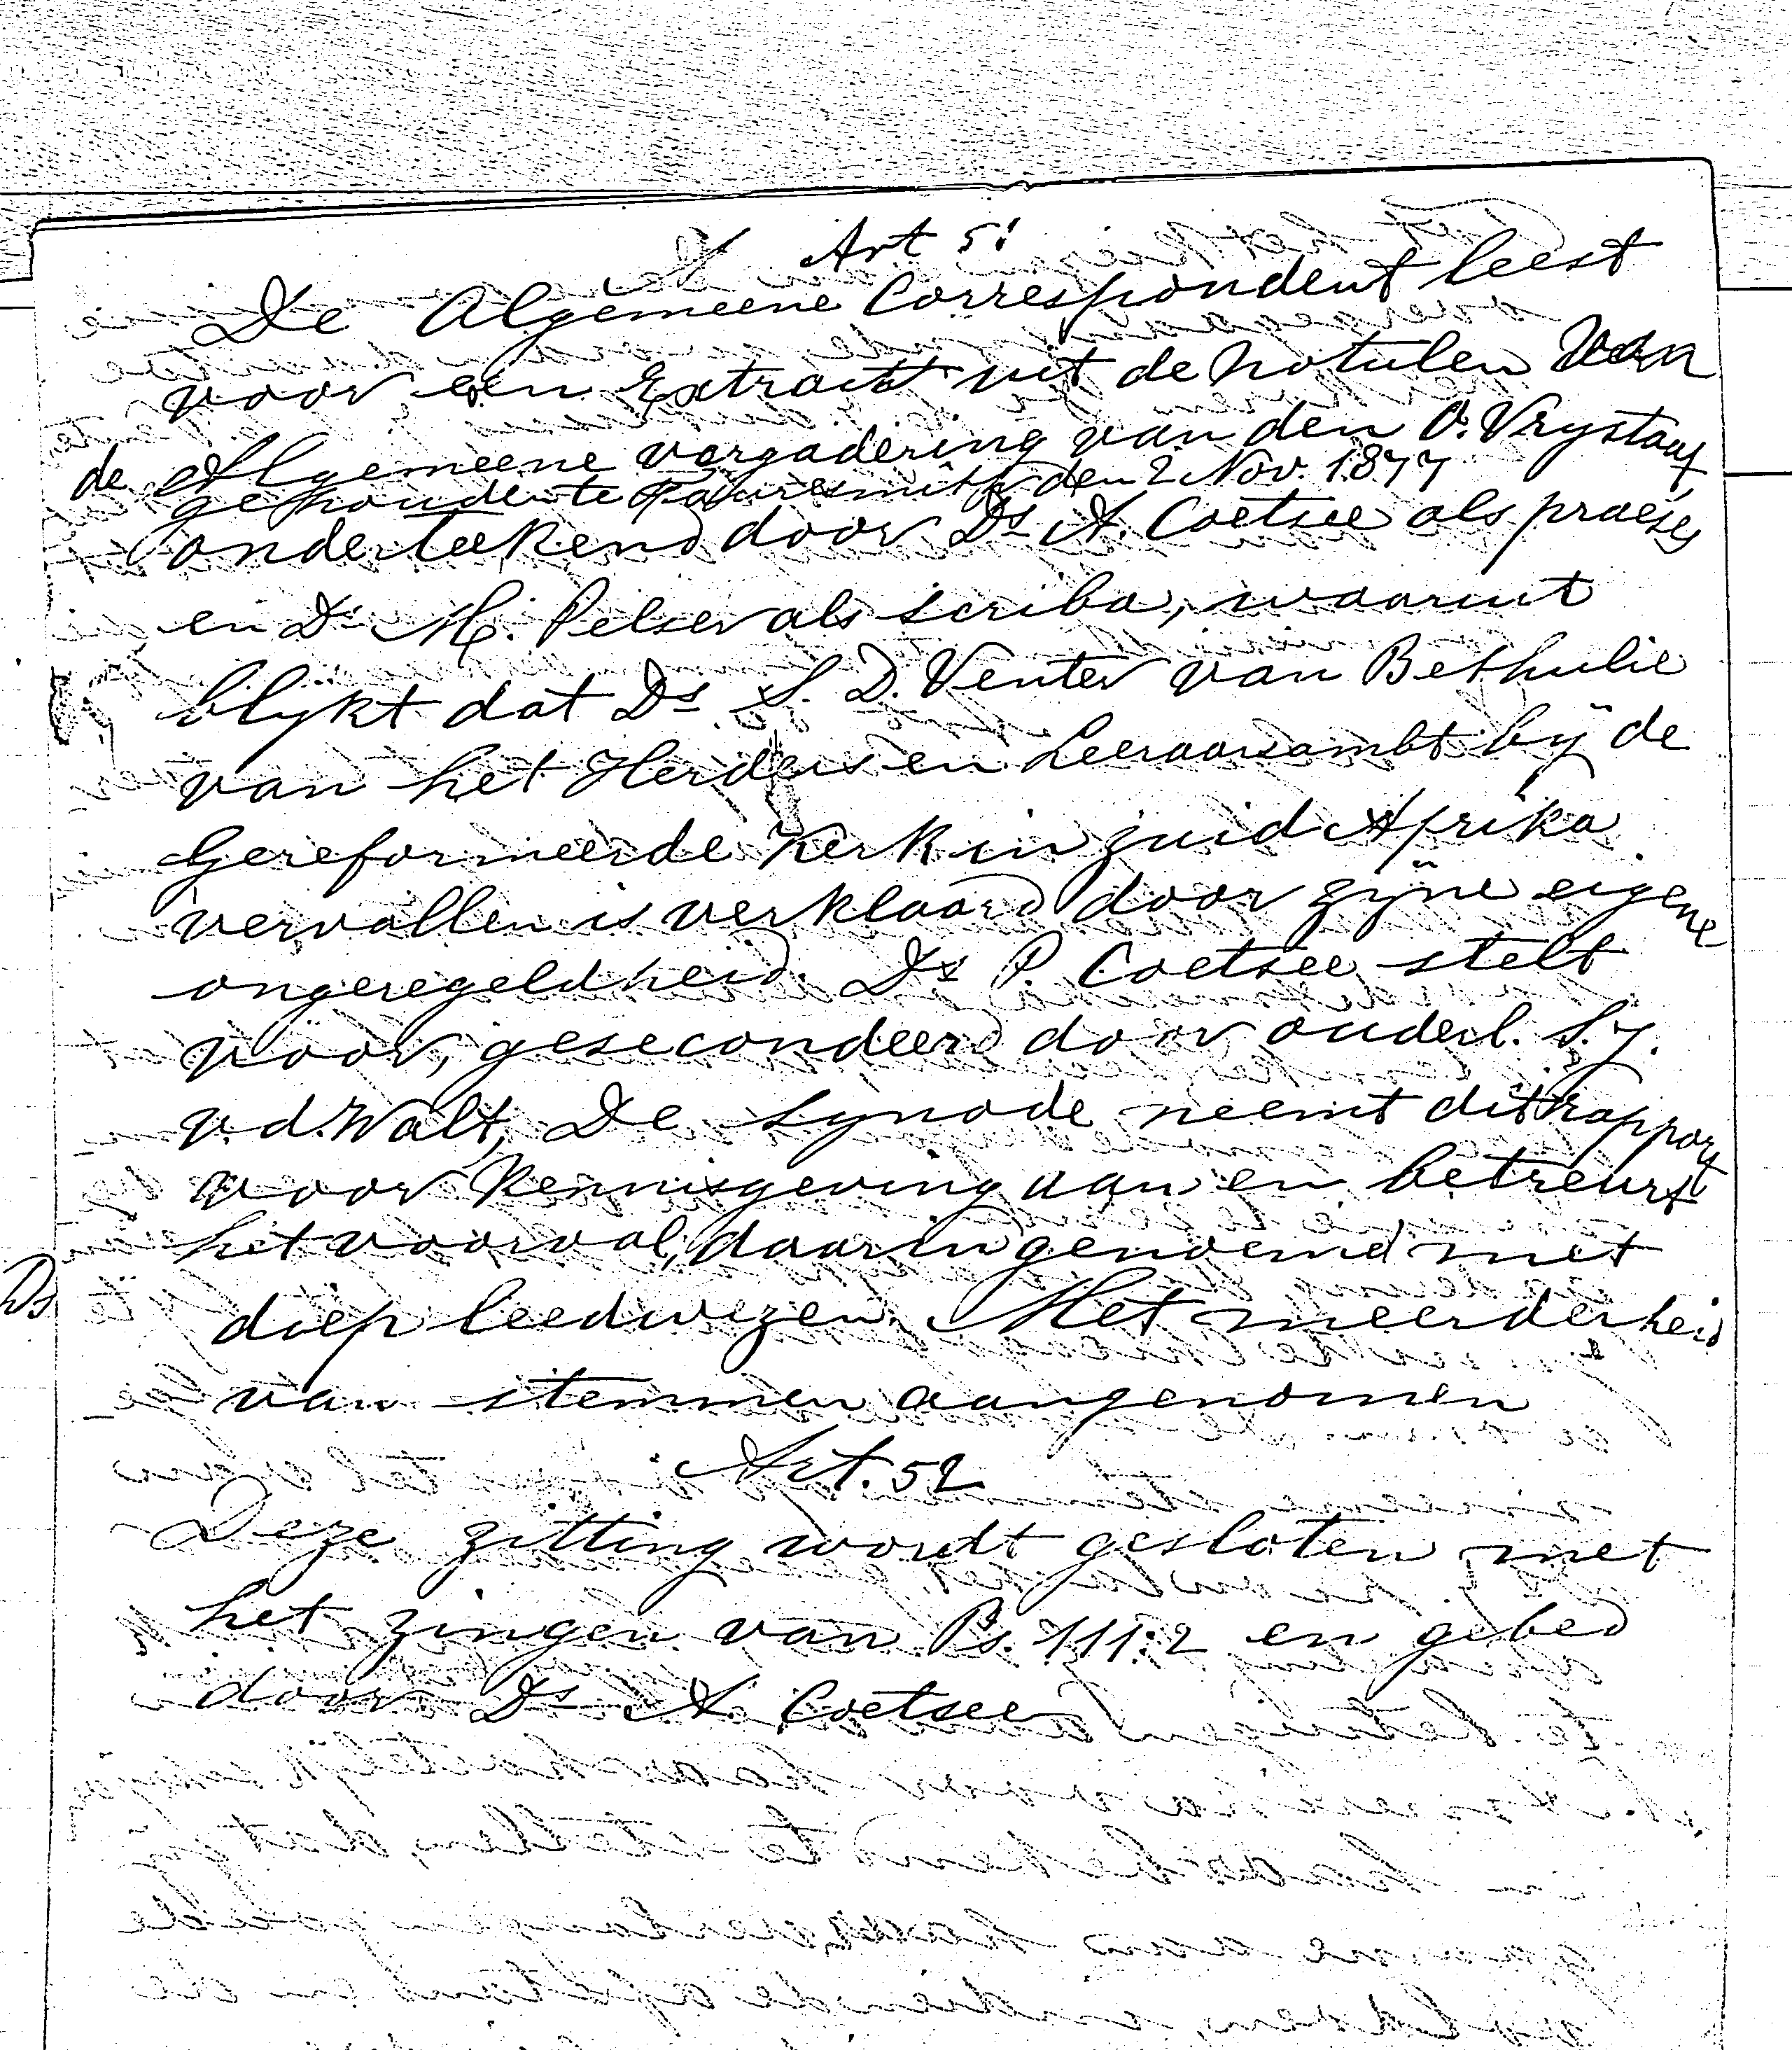 Art 51
De Algemeene Correspondent leest
voor een Extract uit de notulen van
de Algemeene vergadering van den O. Vrystaat
gehouden te Fauresmith den 2 Nov. 1877
onderteekend door Ds A. Coetsee als praeses
en Ds M. Pelser als scriba, waaruit
blijkt dat Ds S. D. Venter van Bethulie
van het Herders en Leeraarsambt bij de
Gereformeerde Kerk in Zuid Afrika
vervallen is verklaard door zijne eigene
ongeregeldheid. Ds P. Coetsee stelt
voor, gesecondeerd door ouderl. S. J.
v.d. Walt, De synode neemt dit rapport
voor kennisgeving aan en betreurt
het voorval, daarin genoemd met
Ds
diep leedwezen. Met meerderheid
van stemmen aangenomen
Art. 52
Deze zitting wordt gesloten met
het zingen van Ps. 111:2 en gebed
door Ds A. Coetsee